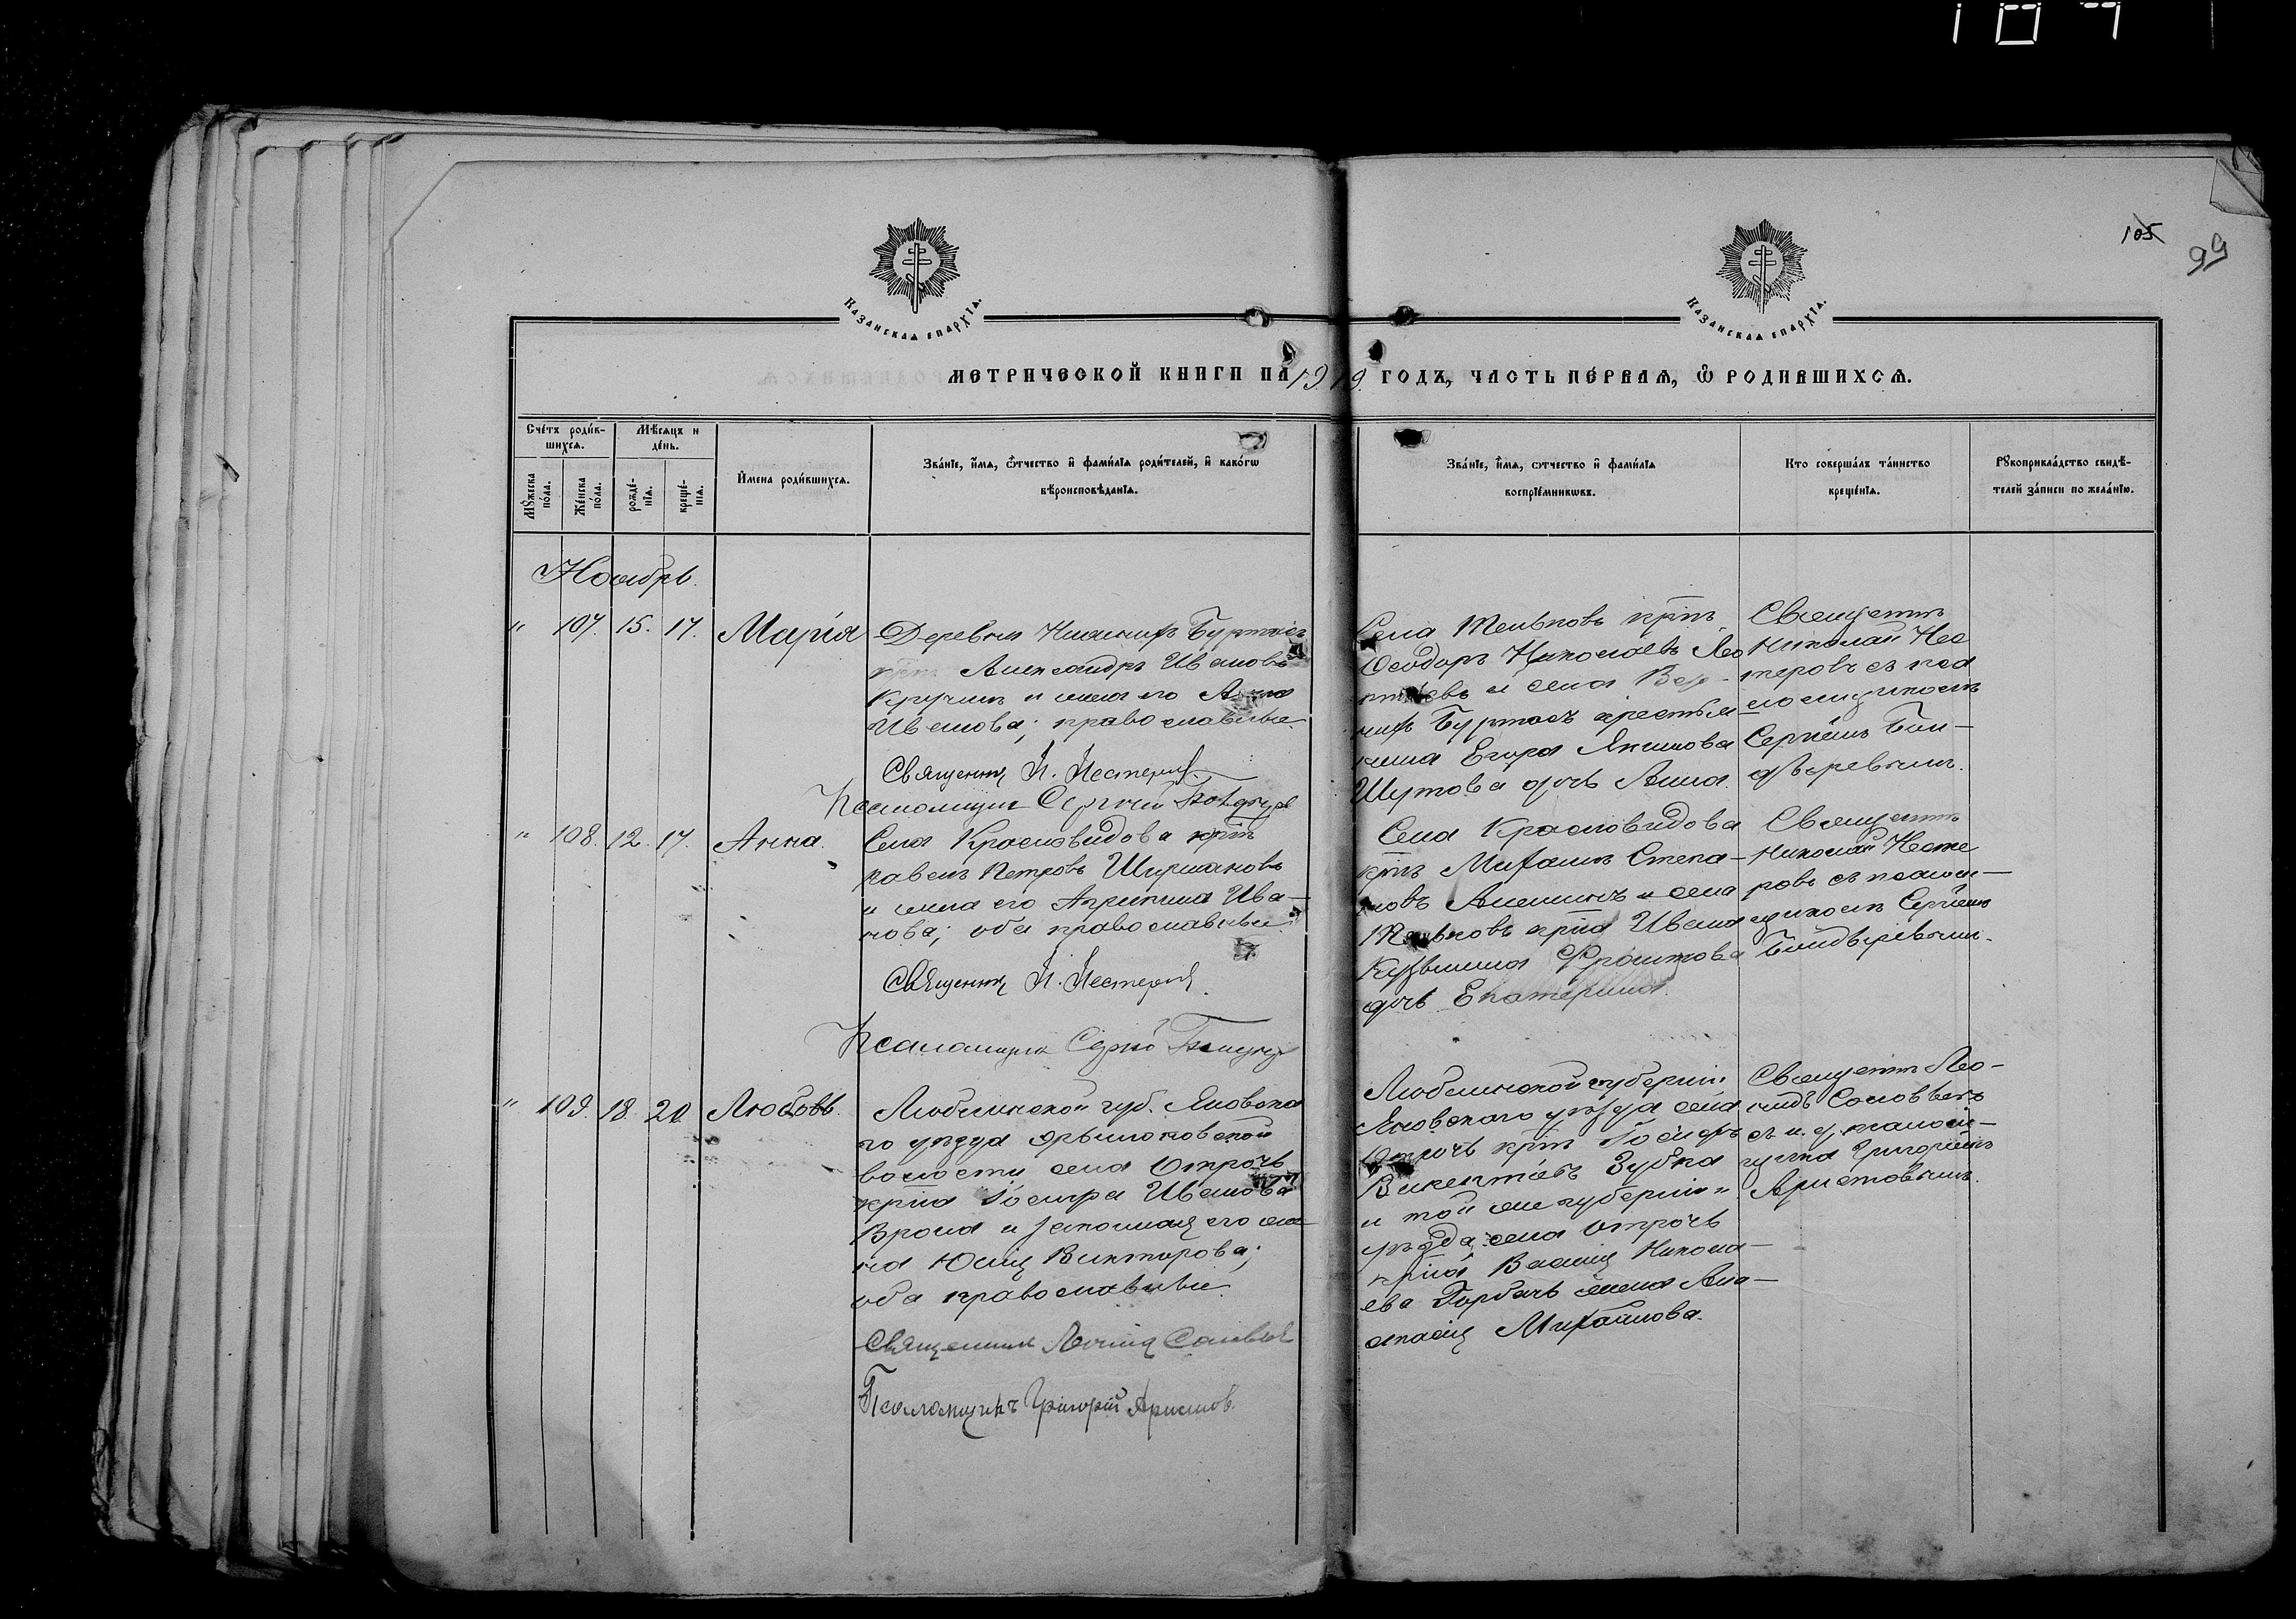 105
99
Казанская епархїя.
Казанская епархїя.
МЕТРИЧЕСКОЙ КНИГИ НА 1919 ГОДЪ, ЧАСТЬ ПЕ́РВАЯ, Ѡ РОДИВШИХСЯ.
Сче́тъ роди́вшихся.
Му́жеска по́ла.
Же́нска по́ла.
Мѣ́сяцъ и де́нь.
рожде́нїя.
креще́нїя.
И҆мена роди́вшихся.
Зва́нїе, и҆́мя, ѻ҆́тчество и҆ фами́лїя роди́телей, и҆ како́гѡ
вѣроисповѣ́данїя.
Зва́нїе, и҆́мя, ѻ҆́тчество и҆ фами́лїя
воспрїе́мникѡвъ.
Кто соверша́лъ та́инство
креще́нїя.
Рꙋкоприкла́дство свидѣ́-
телей за́писи по жела́нїю.
Ноябрь.
" 107. 15. 17. Марія
Деревни Нижнихъ Буртасъ
крт. Александръ Ивановъ
и жена его Анна
Иванова; православные
Священник Н. Нестеров
Псаломщик Сергий
Села Теньковъ крт.
Ѳеодоръ Николаевъ Лео
нтьевъ и села Вер-
нихъ Буртасъ крестья
нина Егора Якимова
Шутова дочь Анна.
Священнъ
Николай Нес
теровъ съ пса
ломщикомъ
Сергіемъ

" 108. 12. 17. Анна.
Села Красновидова крт.
Павелъ Петровъ Ширшановъ
и жена его Агрипина Ива-
нова; оба православные
Священник Н. Нестеров.
Псаломщик Сергий
Села Красновидова
крт. Михаилъ Степа-
новъ Алешинъ и села
Теньковъ крна Ивана
Кузьмина Фролова
дочь Екатерина.
Священнъ
Николай Несте
ровъ съ псалом-
щикомъ Сергіемъ

" 109. 18. 20. Любовь.
Люблинской губ. Яновска
го уезда
волости села Отрочъ
крна Іосифа Иванова
Врона и законная его же-
на Юлія Викторова;
оба православные.
Священник Леонид Соловьев
Псаломщикъ Григорій Аристов.
Люблинской губерніи
Яновскаго уезда села
Отрочъ крт. Іосифъ
Викентьевъ Зубка
и той же губерніи "
уезда, села Отрочъ
крна Василія Никола-
ева Горбачъ жена Ана-
стасія Михайлова.
Священнъ Лео-
нидъ Соловьевъ
съ и. д. псалом-
щика Григоріемъ
Аристовымъ.